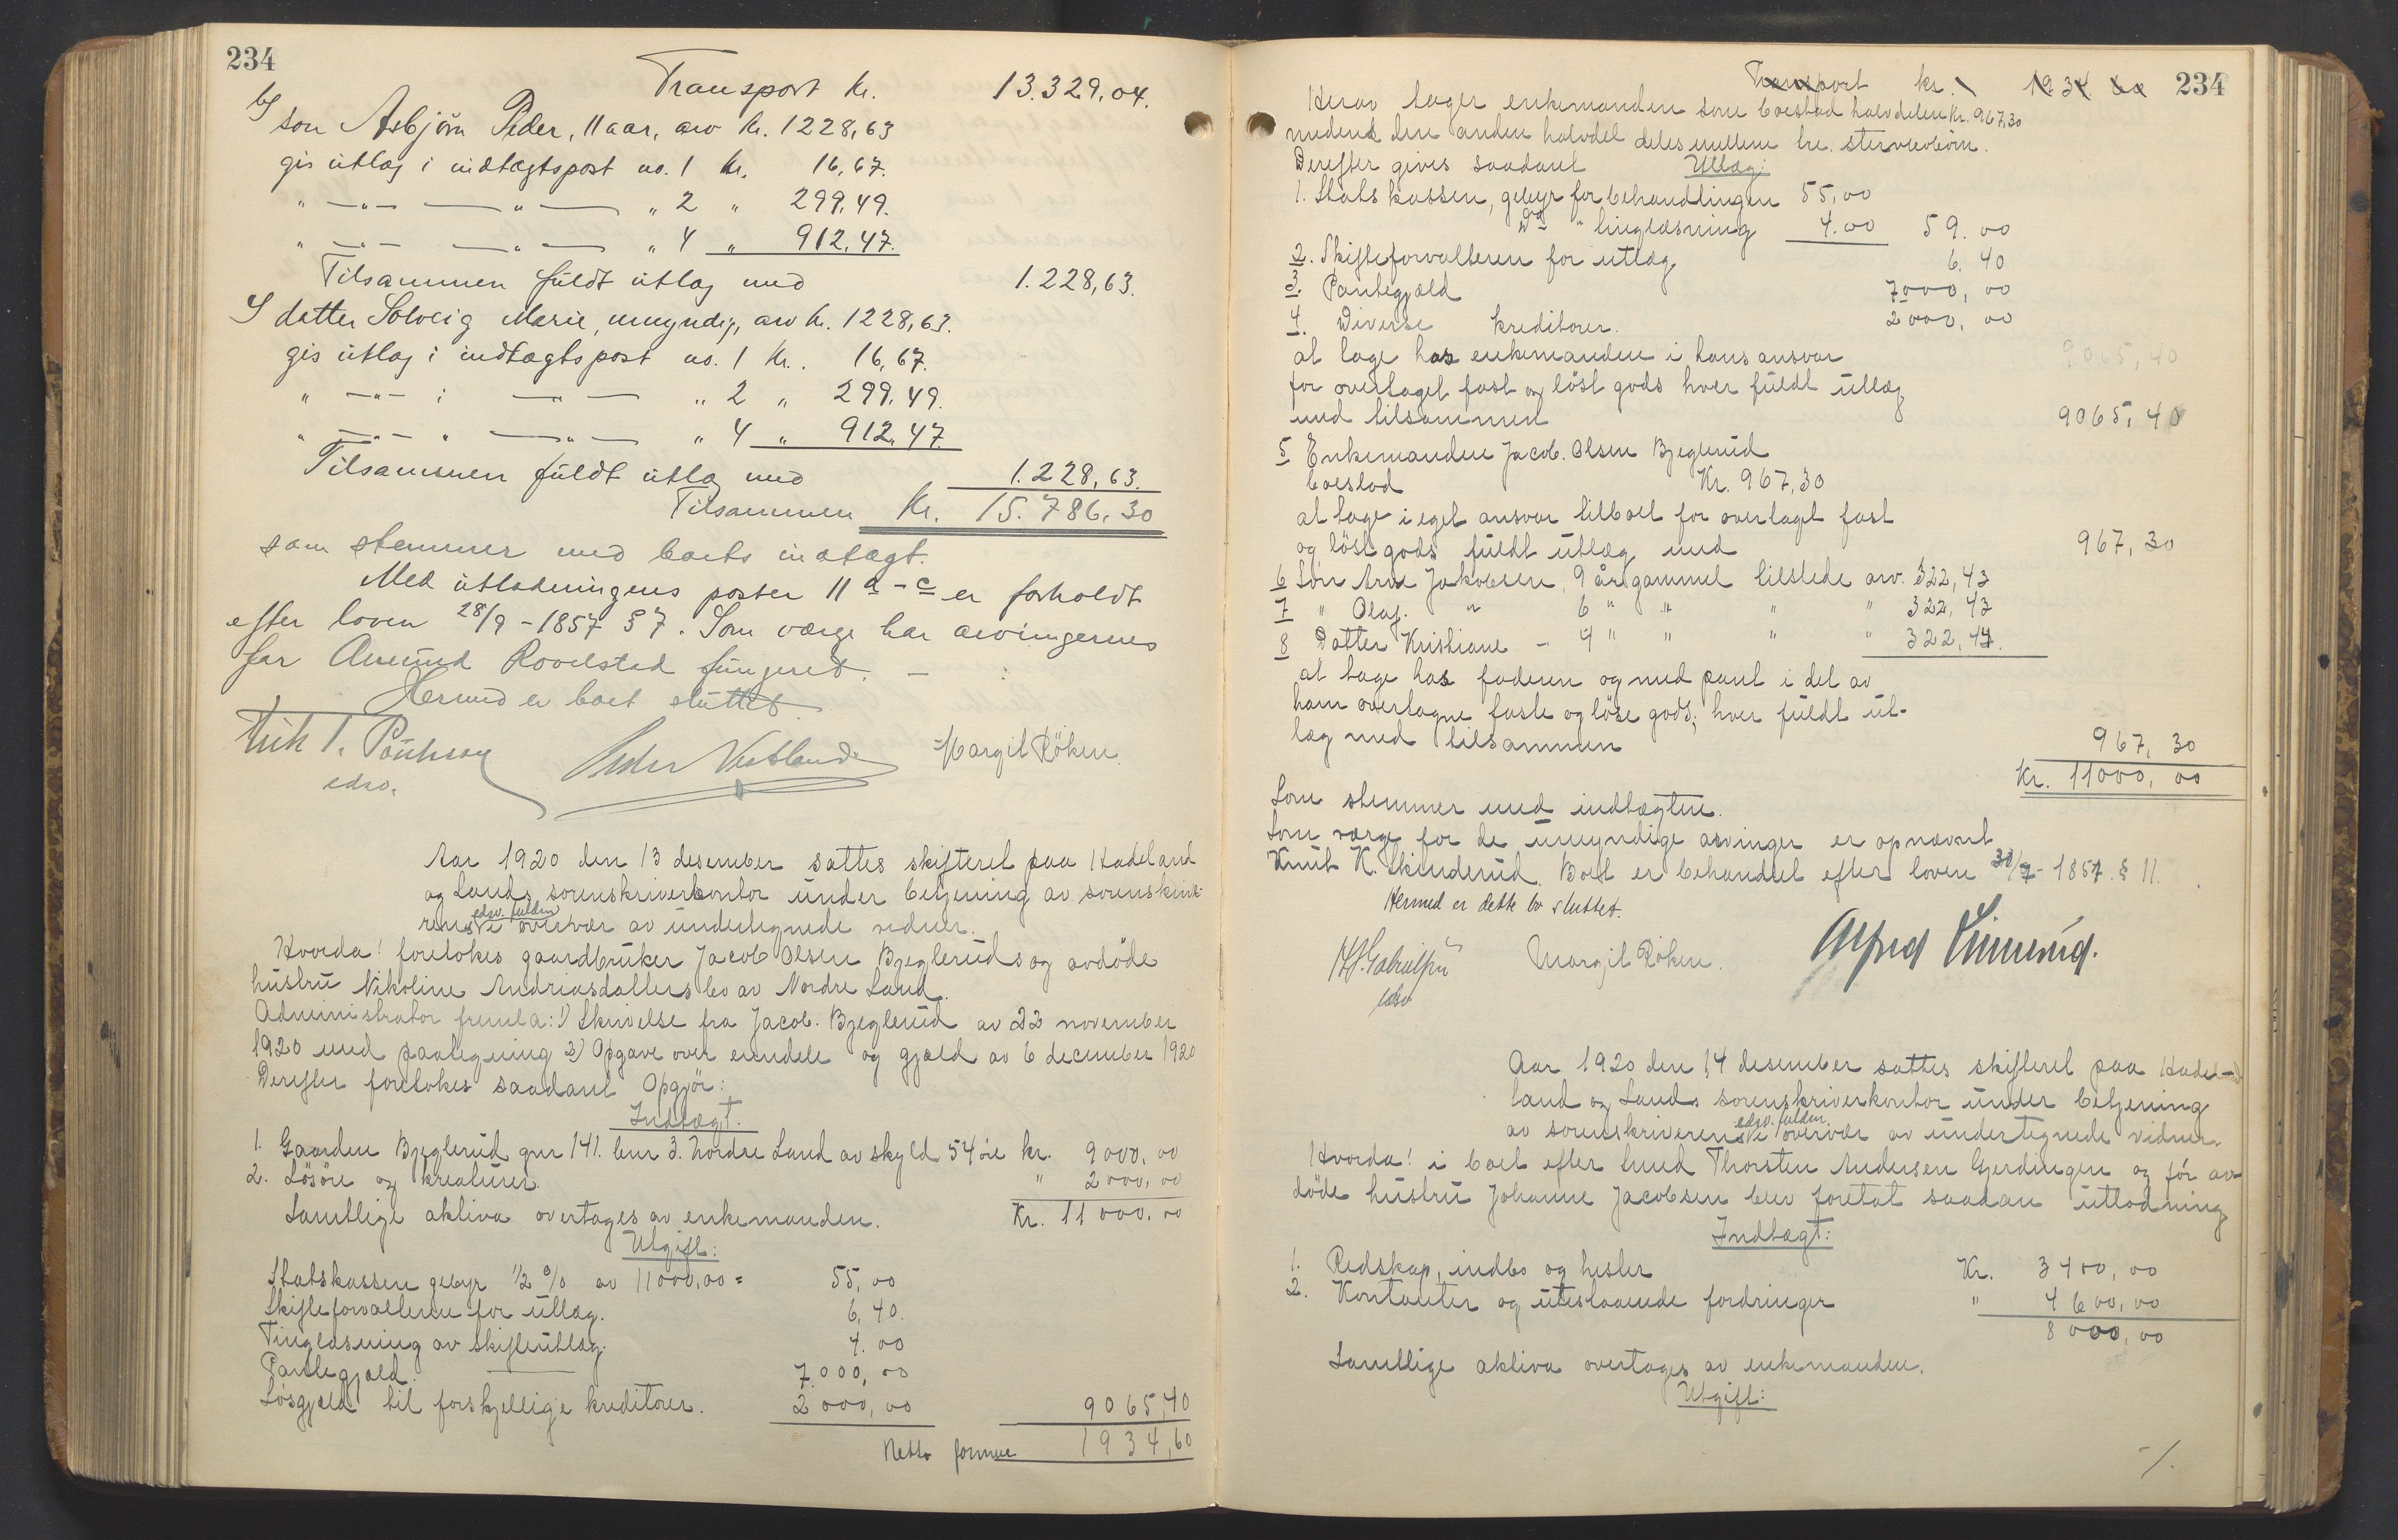 234
Transport kr. 13.329,04.
b/ søn Asbjörn Peder, 11 aar, arv kr. 1228,63
gis utlæg i indtægtspost no. 1 kr. 16,67.
" —"— —"— " 2 " 299,49.
" —"— —"— " 4 " 912,47.
Tilsammen fuldt utlæg med 1.228,63.
c/ datter Solveig Marie, umyndig, arv kr. 1228,63.
gis utlæg i indtægtspost no. 1 kr. 16,67.
" —"— i —"— " 2 " 299,49.
" —"— " —"— " 4 " 912,47.
Tilsammen fuldt utlæg med 1.228,63.
Tilsammen kr. 15.786,30
som stemmer med boets indtægt.
Med utlodningens poster 11 a - c er forholdt
efter loven 28/9 - 1857 § 7. Som værge har arvingernes
far Amund Rovelstad fungeret. —
Hermed er boet sluttet.
Peder Vestland Margit Röken
edsv.
Aar 1920 den 13 desember sattes skifteret paa Hadeland
og Lands sorenskriverkontor under betjening av sorenskrive-
rens edsv. fuldm. i overvær av undertegnede vidner.
Hvorda! foretokes gaardbruker Jacob Olsen Bjegleruds og avdöde
hustru Nikoline Andriasdatters bo av Nordre Land.
Administrator fremla: 1) Skrivelse fra Jacob. Bjeglerud av 22 november
1920 med paategning 2) Opgave over eiendele og gjæld av 6 december 1920
Derefter foretokes saadant Opgjör:
Indtægt.
1. Gaarden Bjeglerud gnr 141. bnr 3. Nordre Land av skyld 54 öre kr. 9000,00
2. Lösöre og kreaturer. " 2000,00
Samtlige aktiva overtages av enkemanden. Kr. 11000,00
Utgift:
Statskassen gebyr 1/2 % av 11000,00 = 55,00
Skifteforvalteren for utlæg. 6,40.
Tinglæsning av skifteutlæg. 4.00
Pantegjæld. 7.000,00
Lösgjæld til forskjellige kreditorer. 2000,00 9065,40
Netto formue 1934,60
Transport kr. 1934 60 234
Herav tager enkemanden som boeslod halvdelen Kr. 967,30
medens den anden halvdel deles mellem tre stervbobörn.
Derefter gives saadant Utlæg:
1. Statskassen, gebyr for behandlingen 55,00
Do " tinglæsning 4.00 59.00
2. Skifteforvalteren for utlæg 6.40
3. Pantegjæld 7000,00
4. Diverse kreditorer. 2000,00
at tage hos enkemanden i hans ansvar 9065,40
for overtaget fast og löst gods hver fuldt utlæg
med tilsammen 9065,40
5 Enkemanden Jacob. Olsen Bjeglerud
boeslod Kr. 967,30
at tage i eget ansvar til boet for overtaget fast
og löst gods fuldt utlæg med 967,30
6 Sön Arne Jakobsen, 9 år gammel tilstede arv. 322,43
7 " Olaf. " 6 " " " " 322,43
8 Datter Kristiane - 4 " " " " 322,44.
at tage hos faderen og med pant i det av
ham overtagne faste og löse gods, hver fuldt ut-
læg med tilsammen 967,30
Kr. 11000,00
Som stemmer med indtægten.
Som værge for de umyndige arvinger er opnævnt
Knut K. Skinderud. Boet er behandlet efter loven 30/7 - 1857. § 11.
Hermed er dette bo sluttet.
Margit Röken. Alfred
edsv
Aar 1920 den 14 desember sattes skifteret paa Hade-
land og Lands sorenskriverkontor under betjening
av sorenskriverens edsv. fuldm. i overvær av undertegnede vidner.
Hvorda! i boet efter Smed Thorsten Andersen Gjerdingen og för av
döde hustru Johanne Jacobsen blev foretat saadan utlodning
Indtægt:
1. Redskap, indbo og hester Kr. 3400,00
2. Kontanter og utestaaende fordringer " 4600,00
8000,00
Samtlige aktiva overtages av enkemanden.
Utgift:
-/.